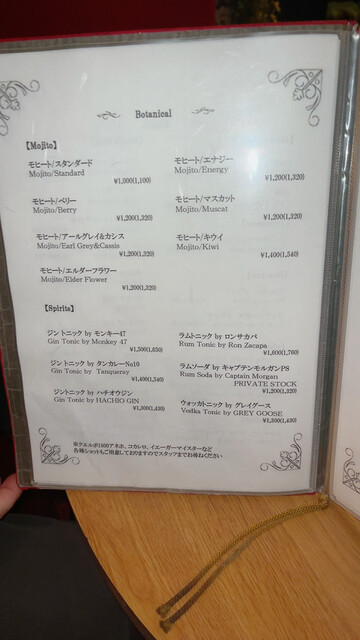 Botanical
【Mojito】
モヒート/スタンダード
Mojito/Standard
¥1,000(1,100)
モヒート/エナジー
Mojito/Energy
¥1,200(1,320)
モヒート/ベリー
Mojito/Berry
¥1,200(1,320)
モヒート/マスカット
Mojito/Muscat
¥1,200(1,320)
モヒート/アールグレイ&カシス
Mojito/Earl Grey&Cassis
¥1,200(1,320)
モヒート/キウイ
Mojito/Kiwi
¥1,400(1,540)
モヒート/エルダーフラワー
Mojito/Elder Flower
¥1,200(1,320)
【Spirits】
ジントニック by モンキー47
Gin Tonic by Monkey 47
¥1,500(1,650)
ラムトニック by ロンサカパ
Rum Tonic by Ron Zacapa
¥1,600(1,760)
ジントニック by タンカレーNo10
Gin Tonic by Tanqueray
¥1,400(1,540)
ラムソーダ by キャプテンモルガンPS
Rum Soda by Captain Morgan
PRIVATE STOCK
¥1,200(1,320)
ジントニック by ハチオウジン
Gin Tonic by HACHIO GIN
¥1,300(1,430)
ウォッカトニック by グレイグース
Vodka Tonic by GREY GOOSE
¥1,300(1,430)
※クエルボ1800アネホ、コカレロ、イエーガーマイスターなど
各種ショットもご用意しておりますのでスタッフまでお尋ねください